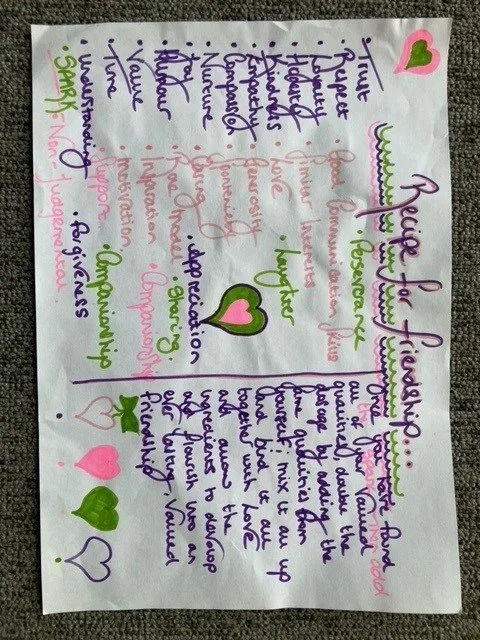 Recipe for friendship...
• Trust
• Respect
• Loyalty
• Honesty
• Kindness
• Empathy
• Compassion
• Nurture
• Joy
• Humour
• Value
• Time
• Understanding
• SPARK
• Perseverance
• Good Communication skills
• Similar Interests
• Love
• Generosity
• Spontaneity
• Caring
• Role Model
• Inspiration
• motivation
• Support
• Non-judgemental.
• Laughter
• Appreciation
• Sharing.
• Companionship
• Companionship
• forgiveness
you have found
the Spark, then add
all of your valued
qualities, double the
dosage by adding the
same qualities from
yourself; mix it all up
and bind it all
together with love
and allow the
ingredients to develop
and flourish into an
ever lasting, valued
friendship